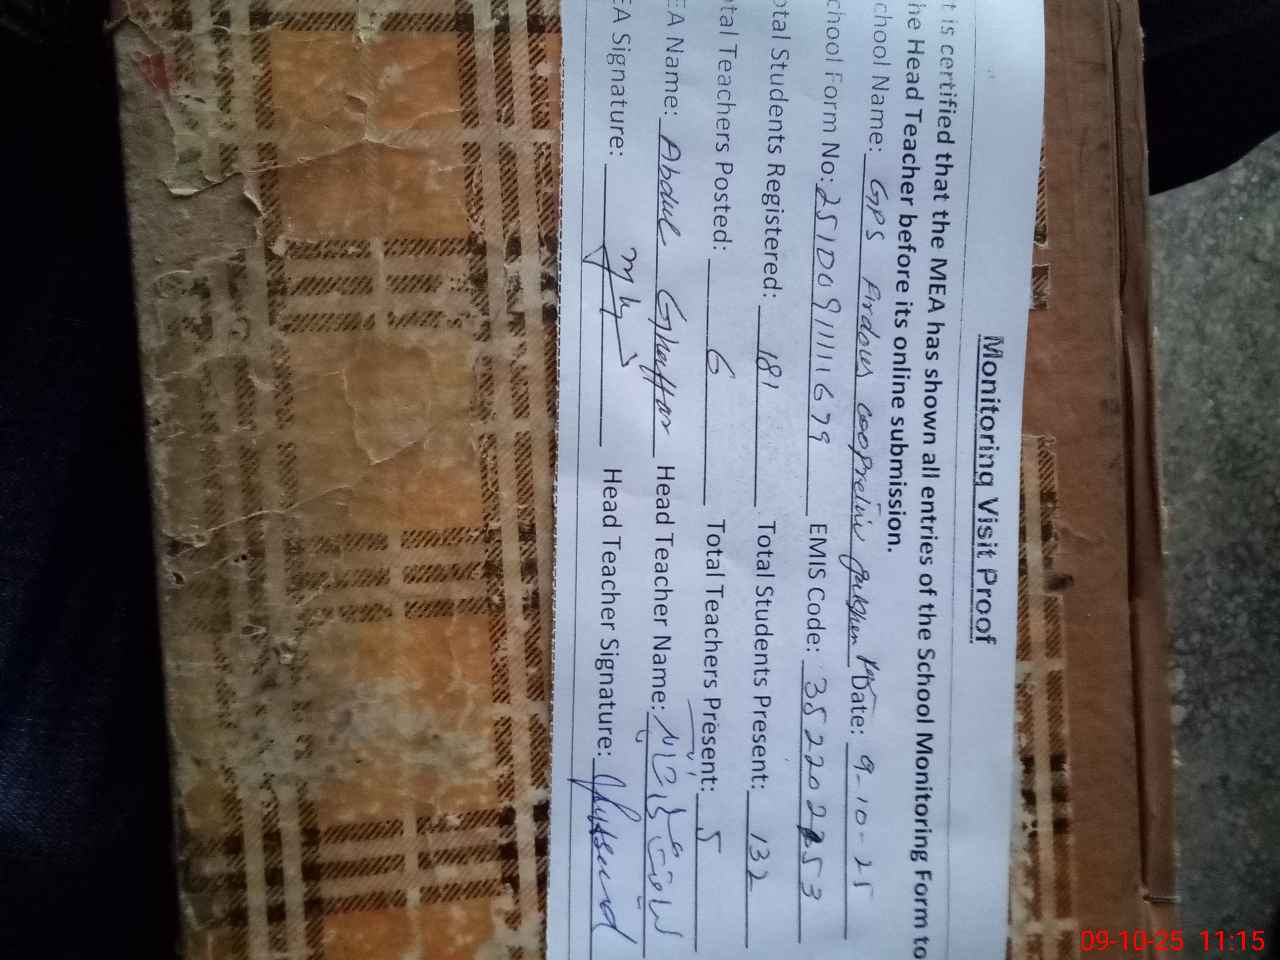 Monitoring Visit Proof
t is certified that the MEA has shown all entries of the School Monitoring Form to
he Head Teacher before its online submission.
chool Name: GPS Firdous Date: 9-10-25
chool Form No: EMIS Code:
otal Students Registered: 181 Total Students Present: 132
tal Teachers Posted: 6 Total Teachers Present: 5
EA Name: Abdul Ghaffar Head Teacher Name:
EA Signature: Head Teacher Signature:
09-10-25 11:15